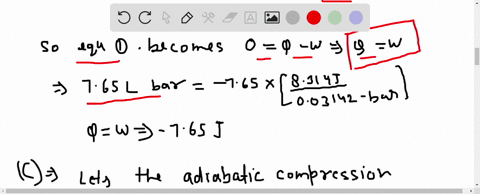 So equ ①. becomes 0 = φ - w ⇒ φ = w
⇒ 7.65 L bar = -7.65 × [8.314J / 0.03142-bar]
φ = w ⇒ -7.65 J
(C) ⇒ Lets the adiabatic compression